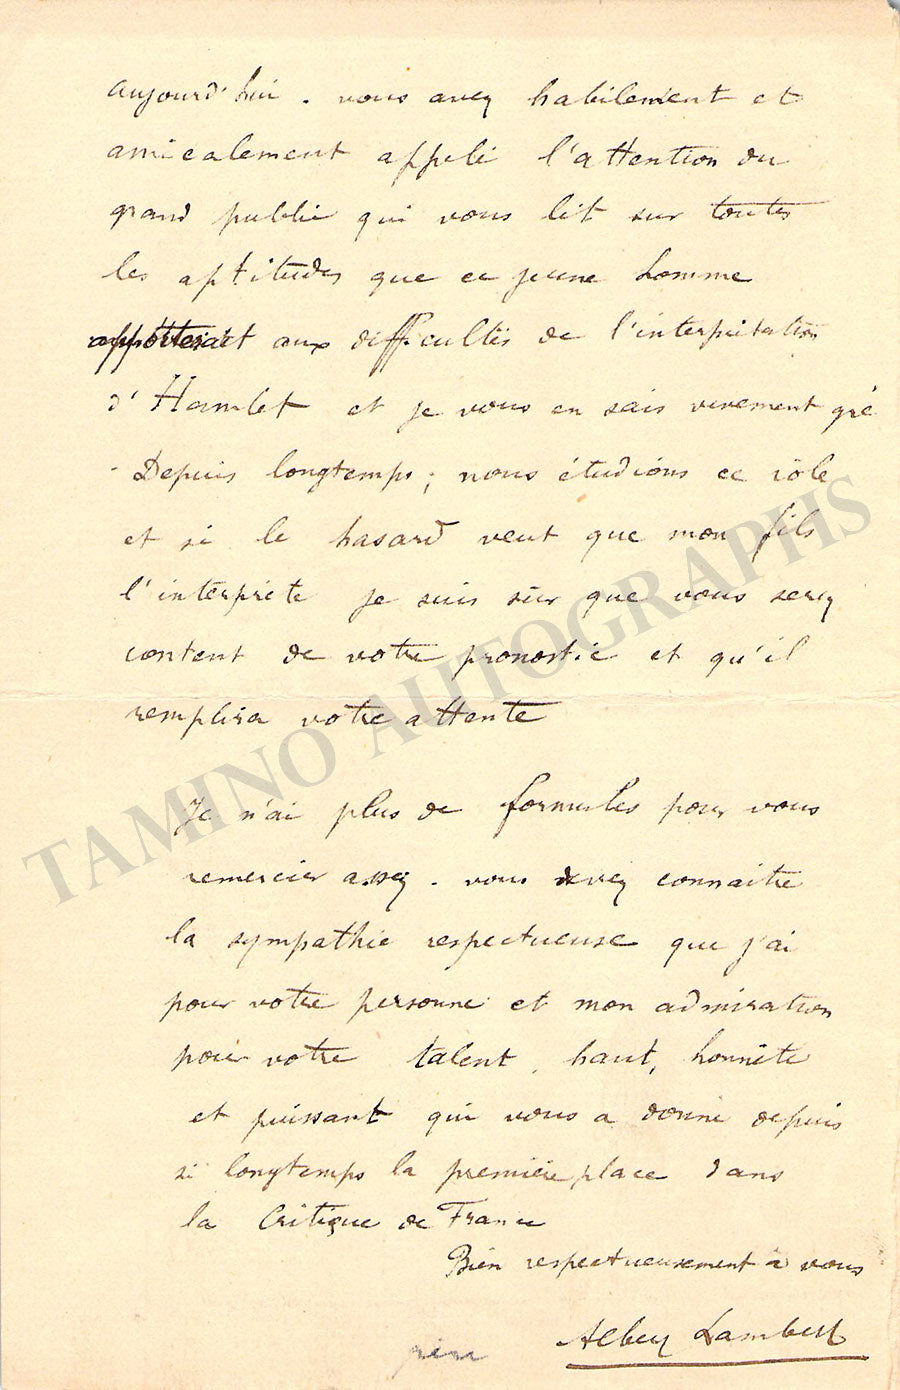 aujourd'hui. vous avez habilement et
amicalement appelé l'attention du
grand public qui vous lit sur toutes
les aptitudes que ce jeune homme
apporterait aux difficultés de l'interprétation
d'Hamlet et je vous en sais vivement gré
- Depuis longtemps; nous étudions ce rôle
et si le hasard veut que mon fils
l'interprète je suis sûr que vous serez
content de votre pronostic et qu'il
remplira votre attente
Je n'ai plus de formules pour vous
remercier assez. vous devez connaitre
la sympathie respectueuse que j'ai
pour votre personne et mon admiration
pour votre talent, haut, honnête
et puissant qui vous a donné depuis
si longtemps la première place dans
la Critique de France
Bien respectueusement à vous
Albert Lambert
père
TAMINO AUTOGRAPHS